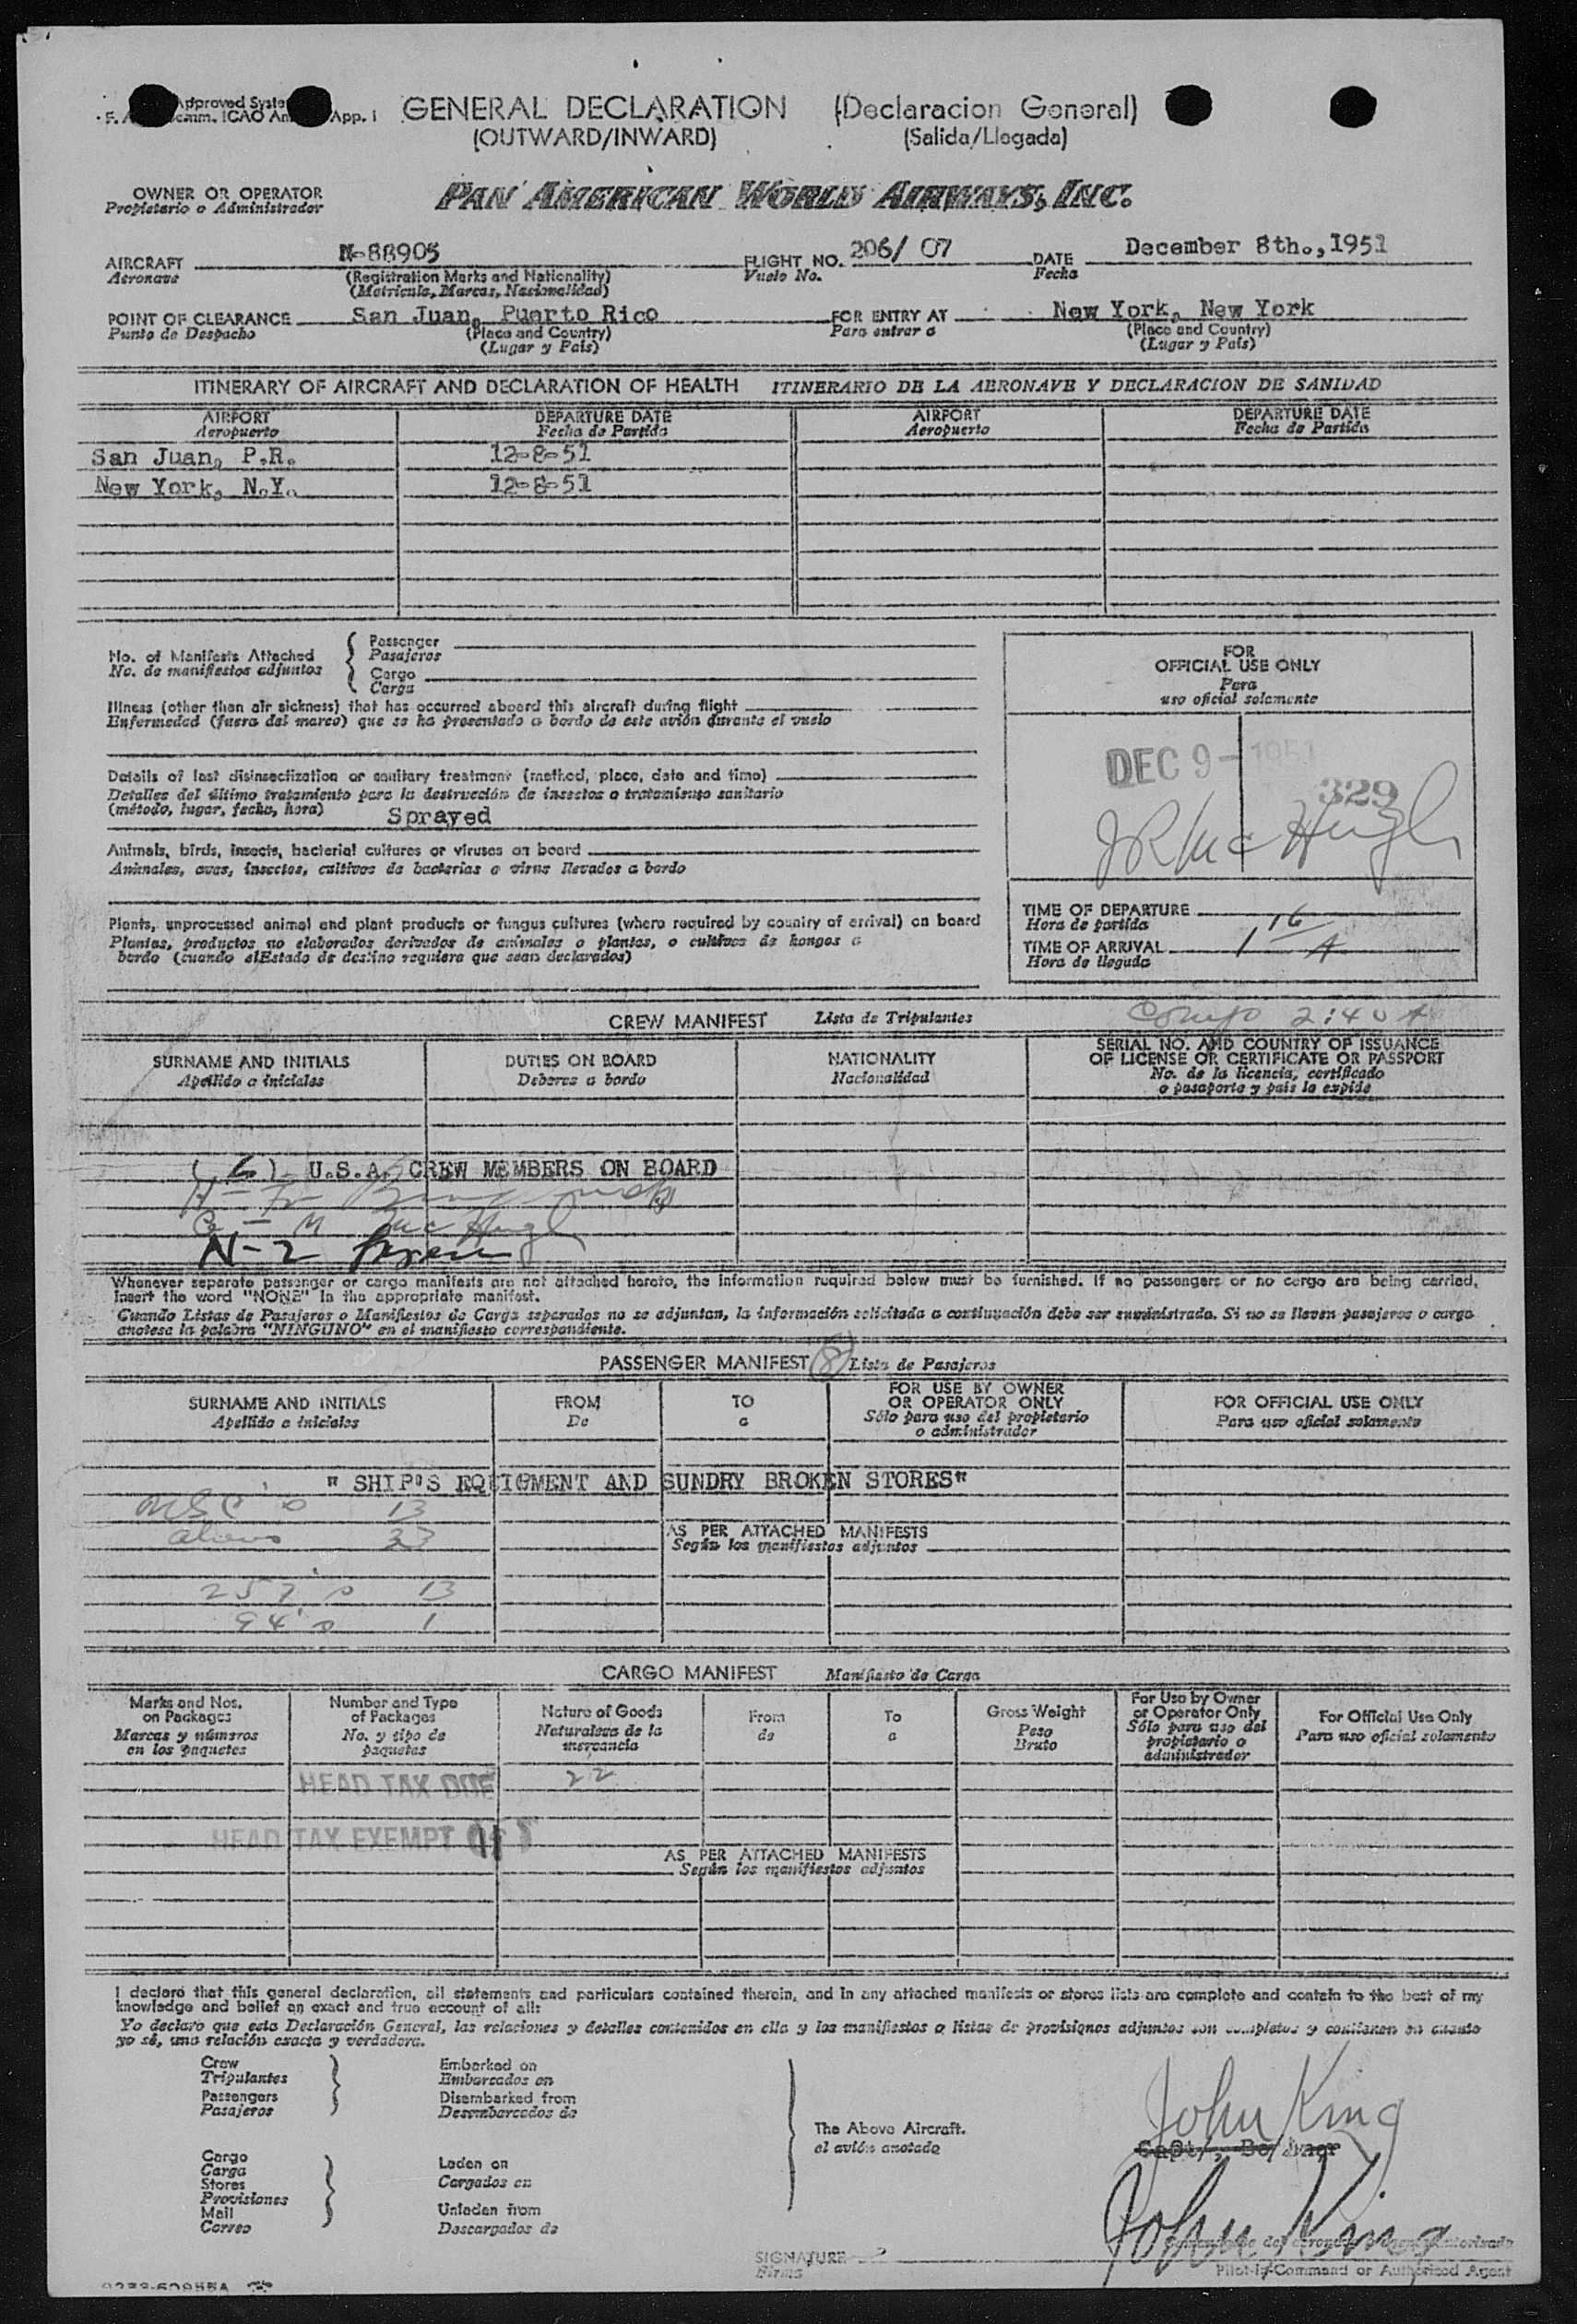 Approved
ICAO App. I
GENERAL DECLARATION (Declaracion General)
(OUTWARD/INWARD) (Salida/Llegada)
OWNER OR OPERATOR
Propietario o Administrador
PAN AMERICAN WORLD AIRWAYS, INC.
AIRCRAFT N-88905 FLIGHT NO. 206/ 07 DATE December 8th., 1951
Aeronave (Registration Marks and Nationality) Vuelo No. Fecha
(Matricula, Marcas, Nacionalidad)
POINT OF CLEARANCE San Juan, Puerto Rico FOR ENTRY AT New York, New York
Punto de Despacho (Place and Country) Para entrar a (Place and Country)
(Lugar y Pais) (Lugar y Pais)
ITINERARY OF AIRCRAFT AND DECLARATION OF HEALTH ITINERARIO DE LA AERONAVE Y DECLARACION DE SANIDAD
AIRPORT DEPARTURE DATE AIRPORT DEPARTURE DATE
Aeropuerto Fecha de Partida Aeropuerto Fecha de Partida
San Juan, P.R. 12-8-51
New York, N.Y. 12-8-51
No. of Manifests Attached
No. de manifiestos adjuntos
Passenger
Pasajeros
Cargo
Carga
Illness (other than air sickness) that has occurred aboard this aircraft during flight
Enfermedad (fuera del mareo) que se ha presentado a bordo de este avión durante el vuelo
Details of last disinsectization or sanitary treatment (method, place, date and time)
Detalles del último tratamiento para la destrucción de insectos o tratamiento sanitario
(método, lugar, fecha, hora) Sprayed
Animals, birds, insects, bacterial cultures or viruses on board
Animales, aves, insectos, cultivos de bacterias o virus llevados a bordo
Plants, unprocessed animal and plant products or fungus cultures (where required by country of arrival) on board
Plantas, productos no elaborados derivados de animales o plantas, o cultivos de hongos a
bordo (cuando elEstado de destino requiera que sean declarados)
FOR
OFFICIAL USE ONLY
Para
uso oficial solamente
DEC 9 - 1951
329
JR McHugh
TIME OF DEPARTURE
Hora de partida
TIME OF ARRIVAL 1 16 A
Hora de llegada
2:40 A
CREW MANIFEST Lista de Tripulantes
SURNAME AND INITIALS DUTIES ON BOARD NATIONALITY SERIAL NO. AND COUNTRY OF ISSUANCE
Apellido a iniciales Deberes a bordo Nacionalidad OF LICENSE OR CERTIFICATE OR PASSPORT
No. de la licencia, certificado
o pasaporte y pais lo expide
(6) U.S.A. CREW MEMBERS ON BOARD
McHugh
N-2
Whenever separate passenger or cargo manifests are not attached hereto, the information required below must be furnished. If no passengers or no cargo are being carried,
Insert the word "NONE" in the appropriate manifest.
Cuando Listas de Pasajeros o Manifiestos de Carga separados no se adjuntan, la información solicitada a continuación debe ser suministrada. Si no se llevan pasajeros o carga
anotese la palabra "NINGUNO" en el manifiesto correspondiente.
PASSENGER MANIFEST Lista de Pasajeros
SURNAME AND INITIALS FROM TO FOR USE BY OWNER FOR OFFICIAL USE ONLY
Apellido e iniciales De a OR OPERATOR ONLY Para uso oficial solamente
Sólo para uso del propietario
o administrador
" SHIP'S EQUIPMENT AND SUNDRY BROKEN STORES"
13
Aliens 33
AS PER ATTACHED MANIFESTS
Según los manifiestos adjuntos
257's 13
94's 1
CARGO MANIFEST Manifiesto de Carga
Marks and Nos. on Packages
Marcas y números en los paquetes
Number and Type of Packages
No. y tipo de paquetes
Nature of Goods
Naturaleza de la mercancia
From
de
To
a
Gross Weight
Peso Bruto
For Use by Owner or Operator Only
Sólo para uso del propietario o administrador
For Official Use Only
Para uso oficial solamente
HEAD TAX DUE 22
HEAD TAX EXEMPT
AS PER ATTACHED MANIFESTS
Según los manifiestos adjuntos
I declare that this general declaration, all statements and particulars contained therein, and in any attached manifests or stores lists are complete and contain to the best of my
knowledge and belief an exact and true account of all:
Yo declaro que esta Declaración General, las relaciones y detalles contenidos en ella y los manifiestos o listas de provisiones adjuntos son completos y contienen en cuanto
yo sé, una relación exacta y verdadera.
Crew
Tripulantes
Passengers
Pasajeros
Embarked on
Embarcados en
Disembarked from
Desembarcados de
Cargo
Carga
Stores
Provisiones
Mail
Correo
Laden on
Cargados en
Unladen from
Descargados de
The Above Aircraft.
el avión anotado
John King
John King
SIGNATURE
Firma
Pilot-in-Command or Authorized Agent